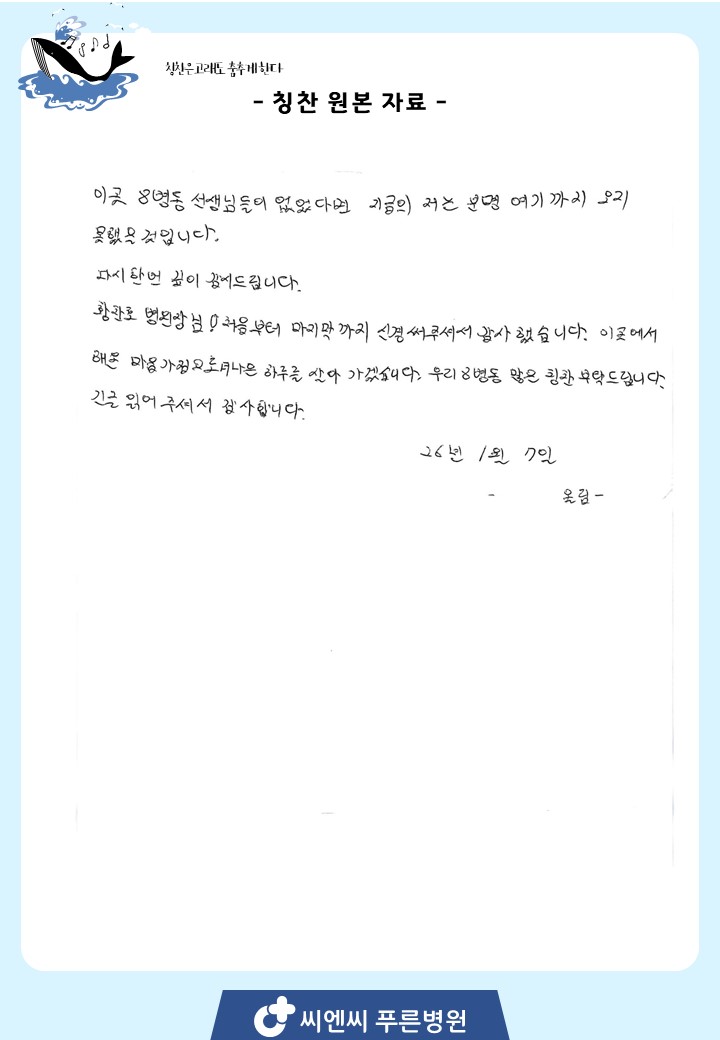 칭찬은 고래도 춤추게 한다
- 칭찬 원본 자료 -
이곳 8병동 선생님들이 없었다면 지금의 저는 분명 여기까지 오지
못했을 것입니다.
다시한번 깊이 감사드립니다.
황찬호 병원장님! 처음부터 마지막까지 신경써주셔서 감사했습니다. 이곳에서
배운 마음가짐으로 더나은 하루를 살아 가겠습니다. 우리 8병동 많은 칭찬 부탁드립니다.
긴글 읽어 주셔서 감사합니다.
26년 1월 7일
- 올림 -
씨엔씨 푸른병원